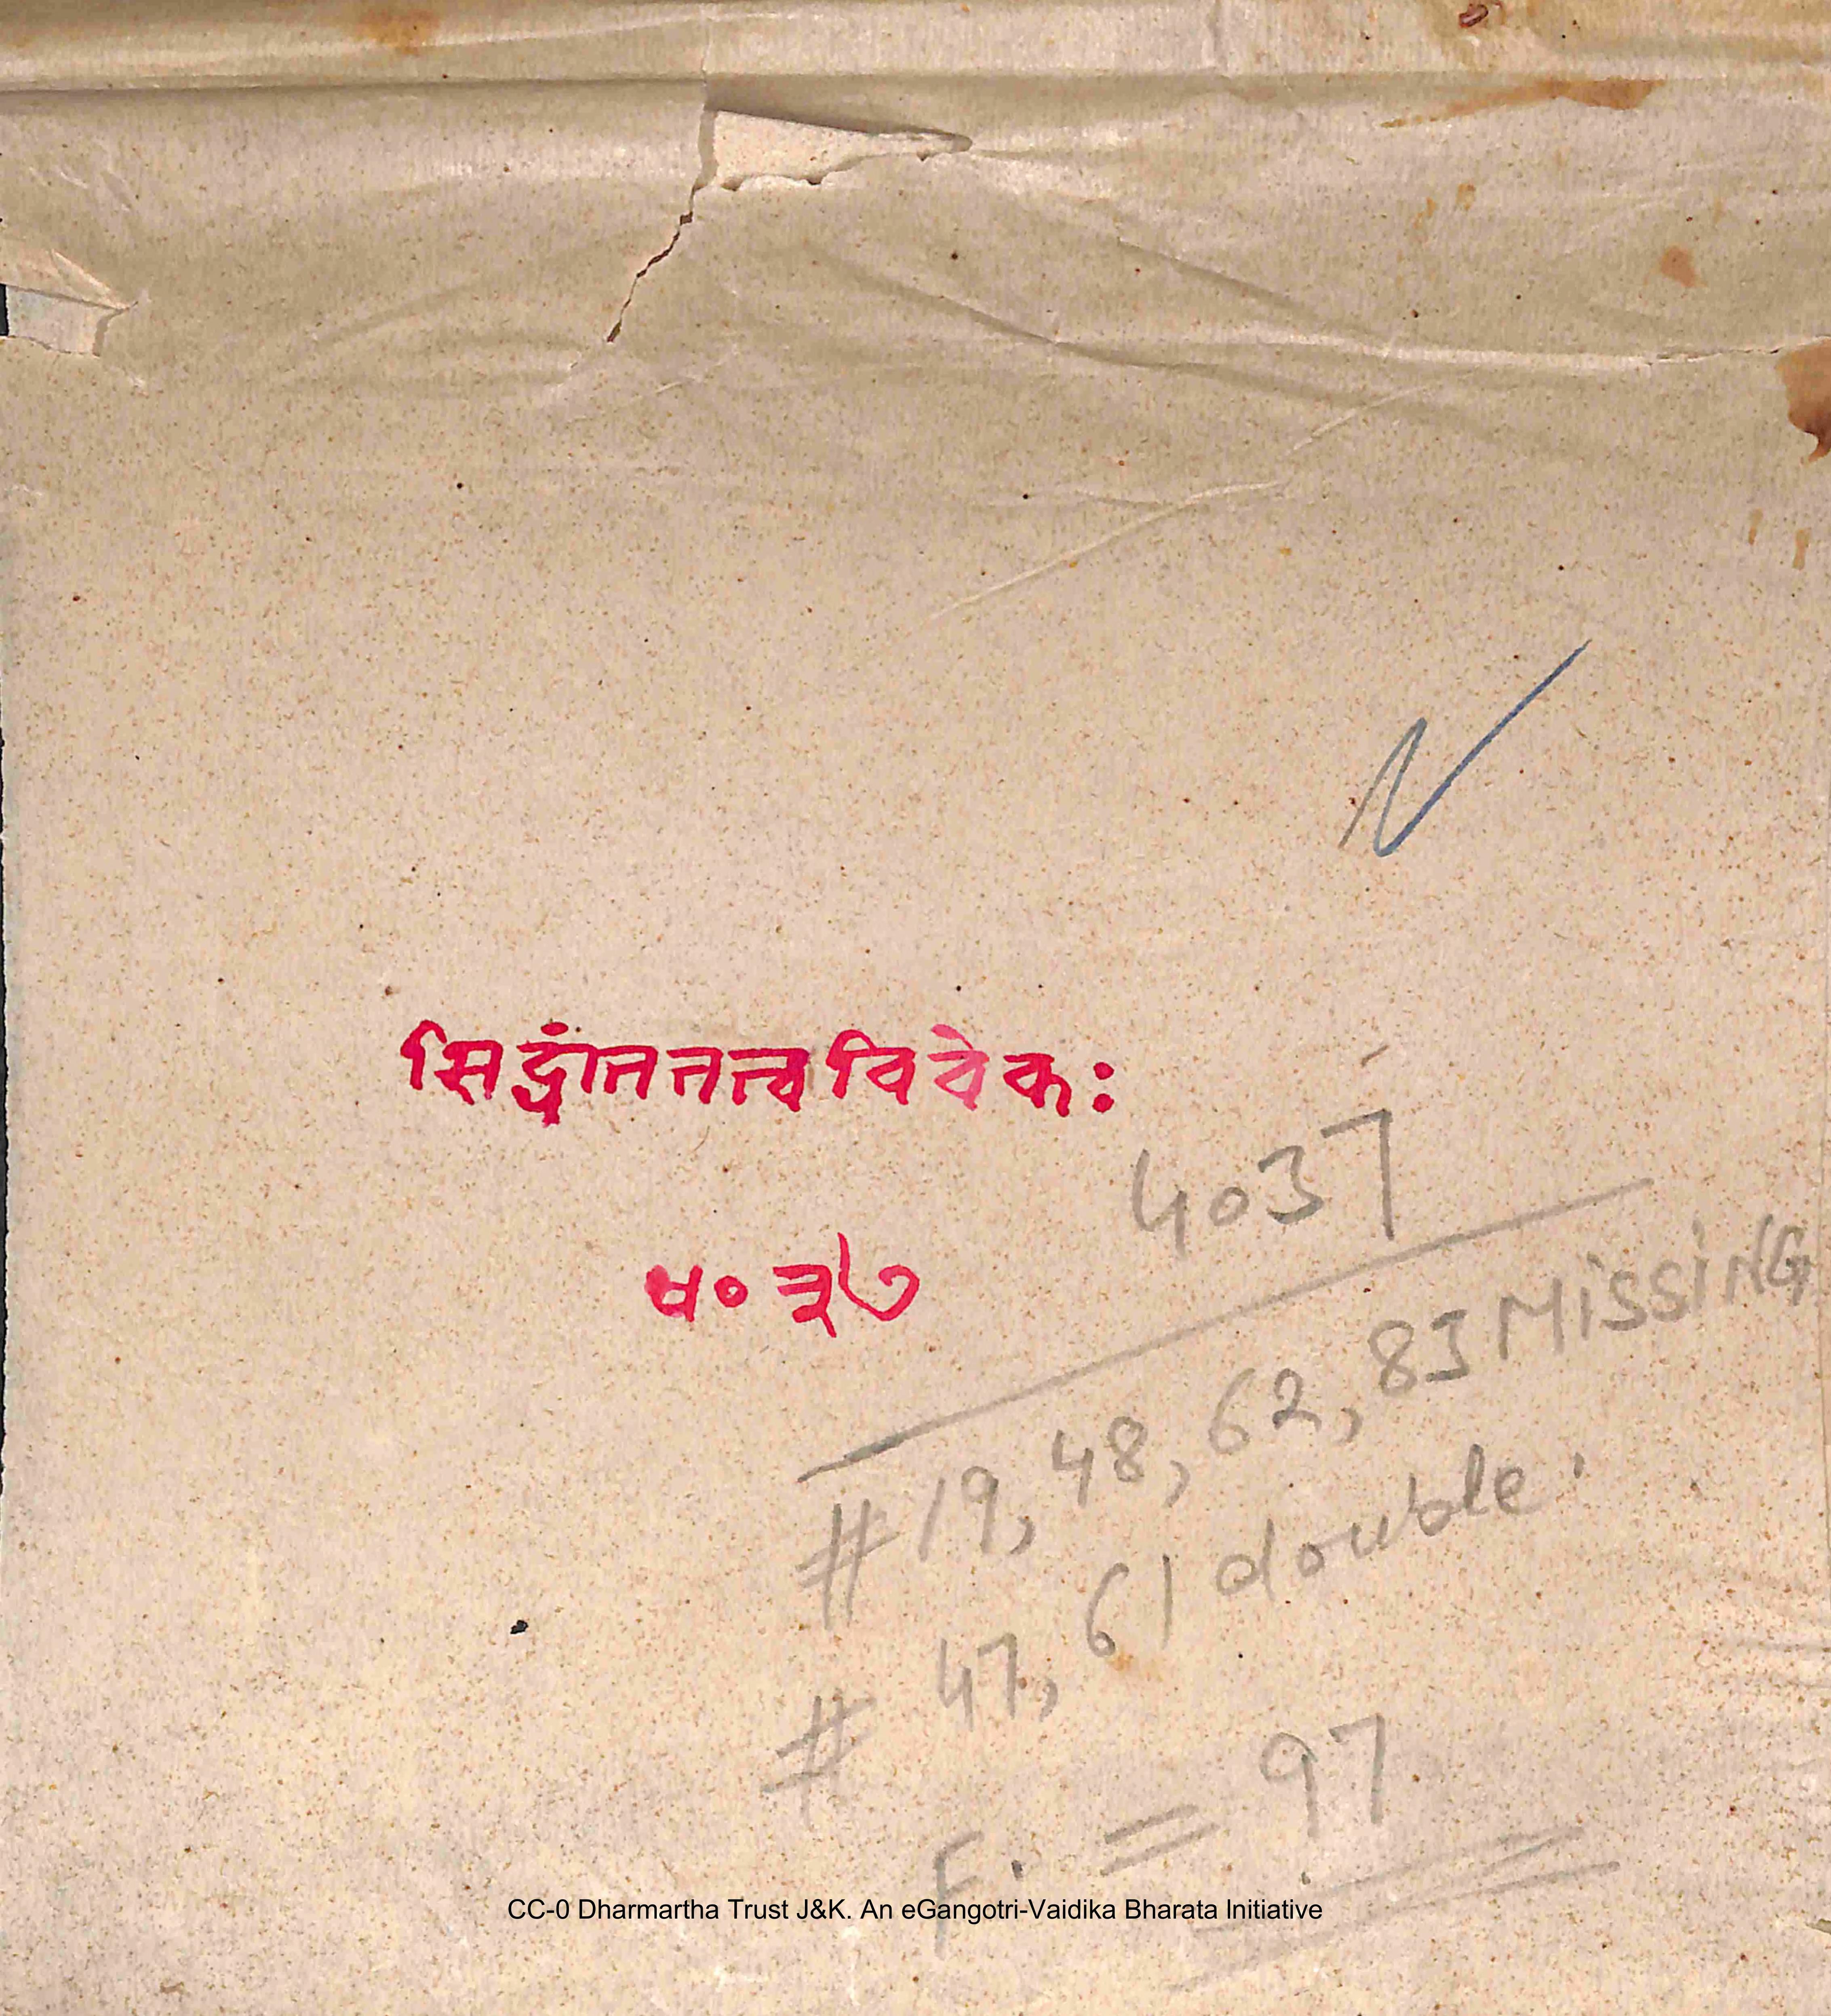 सिद्धांततत्त्वविवेकः
4037
ध० ३७
# 19, 48, 62, 83 MISSING
# 47, 61 double.
F. = 97
CC-0 Dharmartha Trust J&K. An eGangotri-Vaidika Bharata Initiative